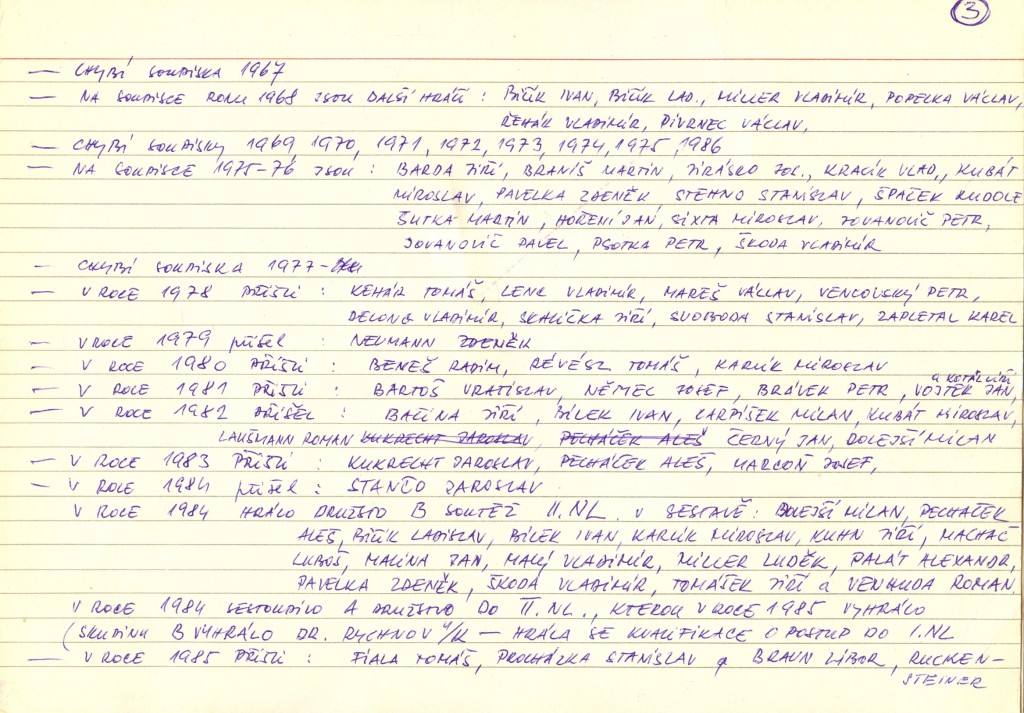 3
— CHYBÍ SOUPISKA 1967
— NA SOUPISCE ROKU 1968 JSOU DALŠÍ HRÁČI : BIČÍK IVAN, BIČÍK LAD., MILLER VLADIMÍR, POPELKA VÁCLAV,
ŘEHÁK VLADIMÍR, PIVRNEC VÁCLAV,
— CHYBÍ SOUPISKY 1969 1970, 1971, 1972, 1973, 1974, 1975, 1986
— NA SOUPISCE 1975-76 JSOU : BARDA JIŘÍ, BRANIŠ MARTIN, JIRÁSKO JOS., KRACÍK VLAD., KUBÁT
MIROSLAV, PAVELKA ZDENĚK, STEHNO STANISLAV, ŠPAČEK RUDOLF
ŠUTKA MARTIN, HOŘENÍ JAN, SIXTA MIROSLAV, JOVANOVIČ PETR,
JOVANOVIČ PAVEL, PSOTKA PETR, ŠKODA VLADIMÍR
— CHYBÍ SOUPISKA 1977-
— V ROCE 1978 PŘIŠLI : KEHÁR TOMÁŠ, LENC VLADIMÍR, MAREŠ VÁCLAV, VENCOVSKÝ PETR,
DELONG VLADIMÍR, SKALIČKA JIŘÍ, SVOBODA STANISLAV, ZAPLETAL KAREL
— V ROCE 1979 přišel : NEUMANN ZDENĚK
— V ROCE 1980 PŘIŠLI : BENEŠ RADIM, RÉVÉSZ TOMÁŠ, KARLÍK MIROSLAV
— V ROCE 1981 PŘIŠLI : BARTOŠ VRATISLAV, NĚMEC JOSEF, BRÁVEK PETR, VOJTEK JAN, a KOTÁL JIŘÍ
— V ROCE 1982 PŘIŠEL : BAŤINA JIŘÍ, BÍLEK IVAN, CARPÍŠEK MILAN, KUBÁT MIROSLAV,
LAUŠMANN ROMAN KUKRECHT JAROSLAV, PECHÁČEK ALEŠ ČERNÝ JAN, DOLEJŠÍ MILAN
— V ROCE 1983 PŘIŠLI : KUKRECHT JAROSLAV, PECHÁČEK ALEŠ, MARCOŇ JOSEF,
— V ROCE 1984 přišel : STANČO JAROSLAV
V ROCE 1984 HRÁLO DRUŽSTVO B SOUTĚŽ II. NL. V SESTAVĚ : DOLEJŠÍ MILAN, PECHÁČEK
ALEŠ, BIČÍK LADISLAV, BÍLEK IVAN, KARLÍK MIROSLAV, KUHN JIŘÍ, MACHAČ
LUBOŠ, MALINA JAN, MALÝ VLADIMÍR, MILLER LUDĚK, PALÁT ALEXANDR,
PAVELKA ZDENĚK, ŠKODA VLADIMÍR, TOMÁŠEK JIŘÍ a VENHUDA ROMAN
V ROCE 1984 SESTOUPILO A DRUŽSTVO DO II. NL., KTEROU V ROCE 1985 VYHRÁLO
(SKUPINU B VYHRÁLO DR. RYCHNOV n/K — HRÁLA SE KVALIFIKACE O POSTUP DO I. NL
— V ROCE 1985 PŘIŠLI : FIALA TOMÁŠ, PROCHÁZKA STANISLAV a BRAUN LIBOR, RUCKEN-
STEINER